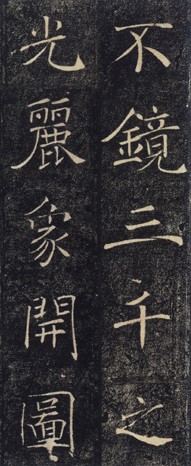 不鏡三千之
光麗象開圖